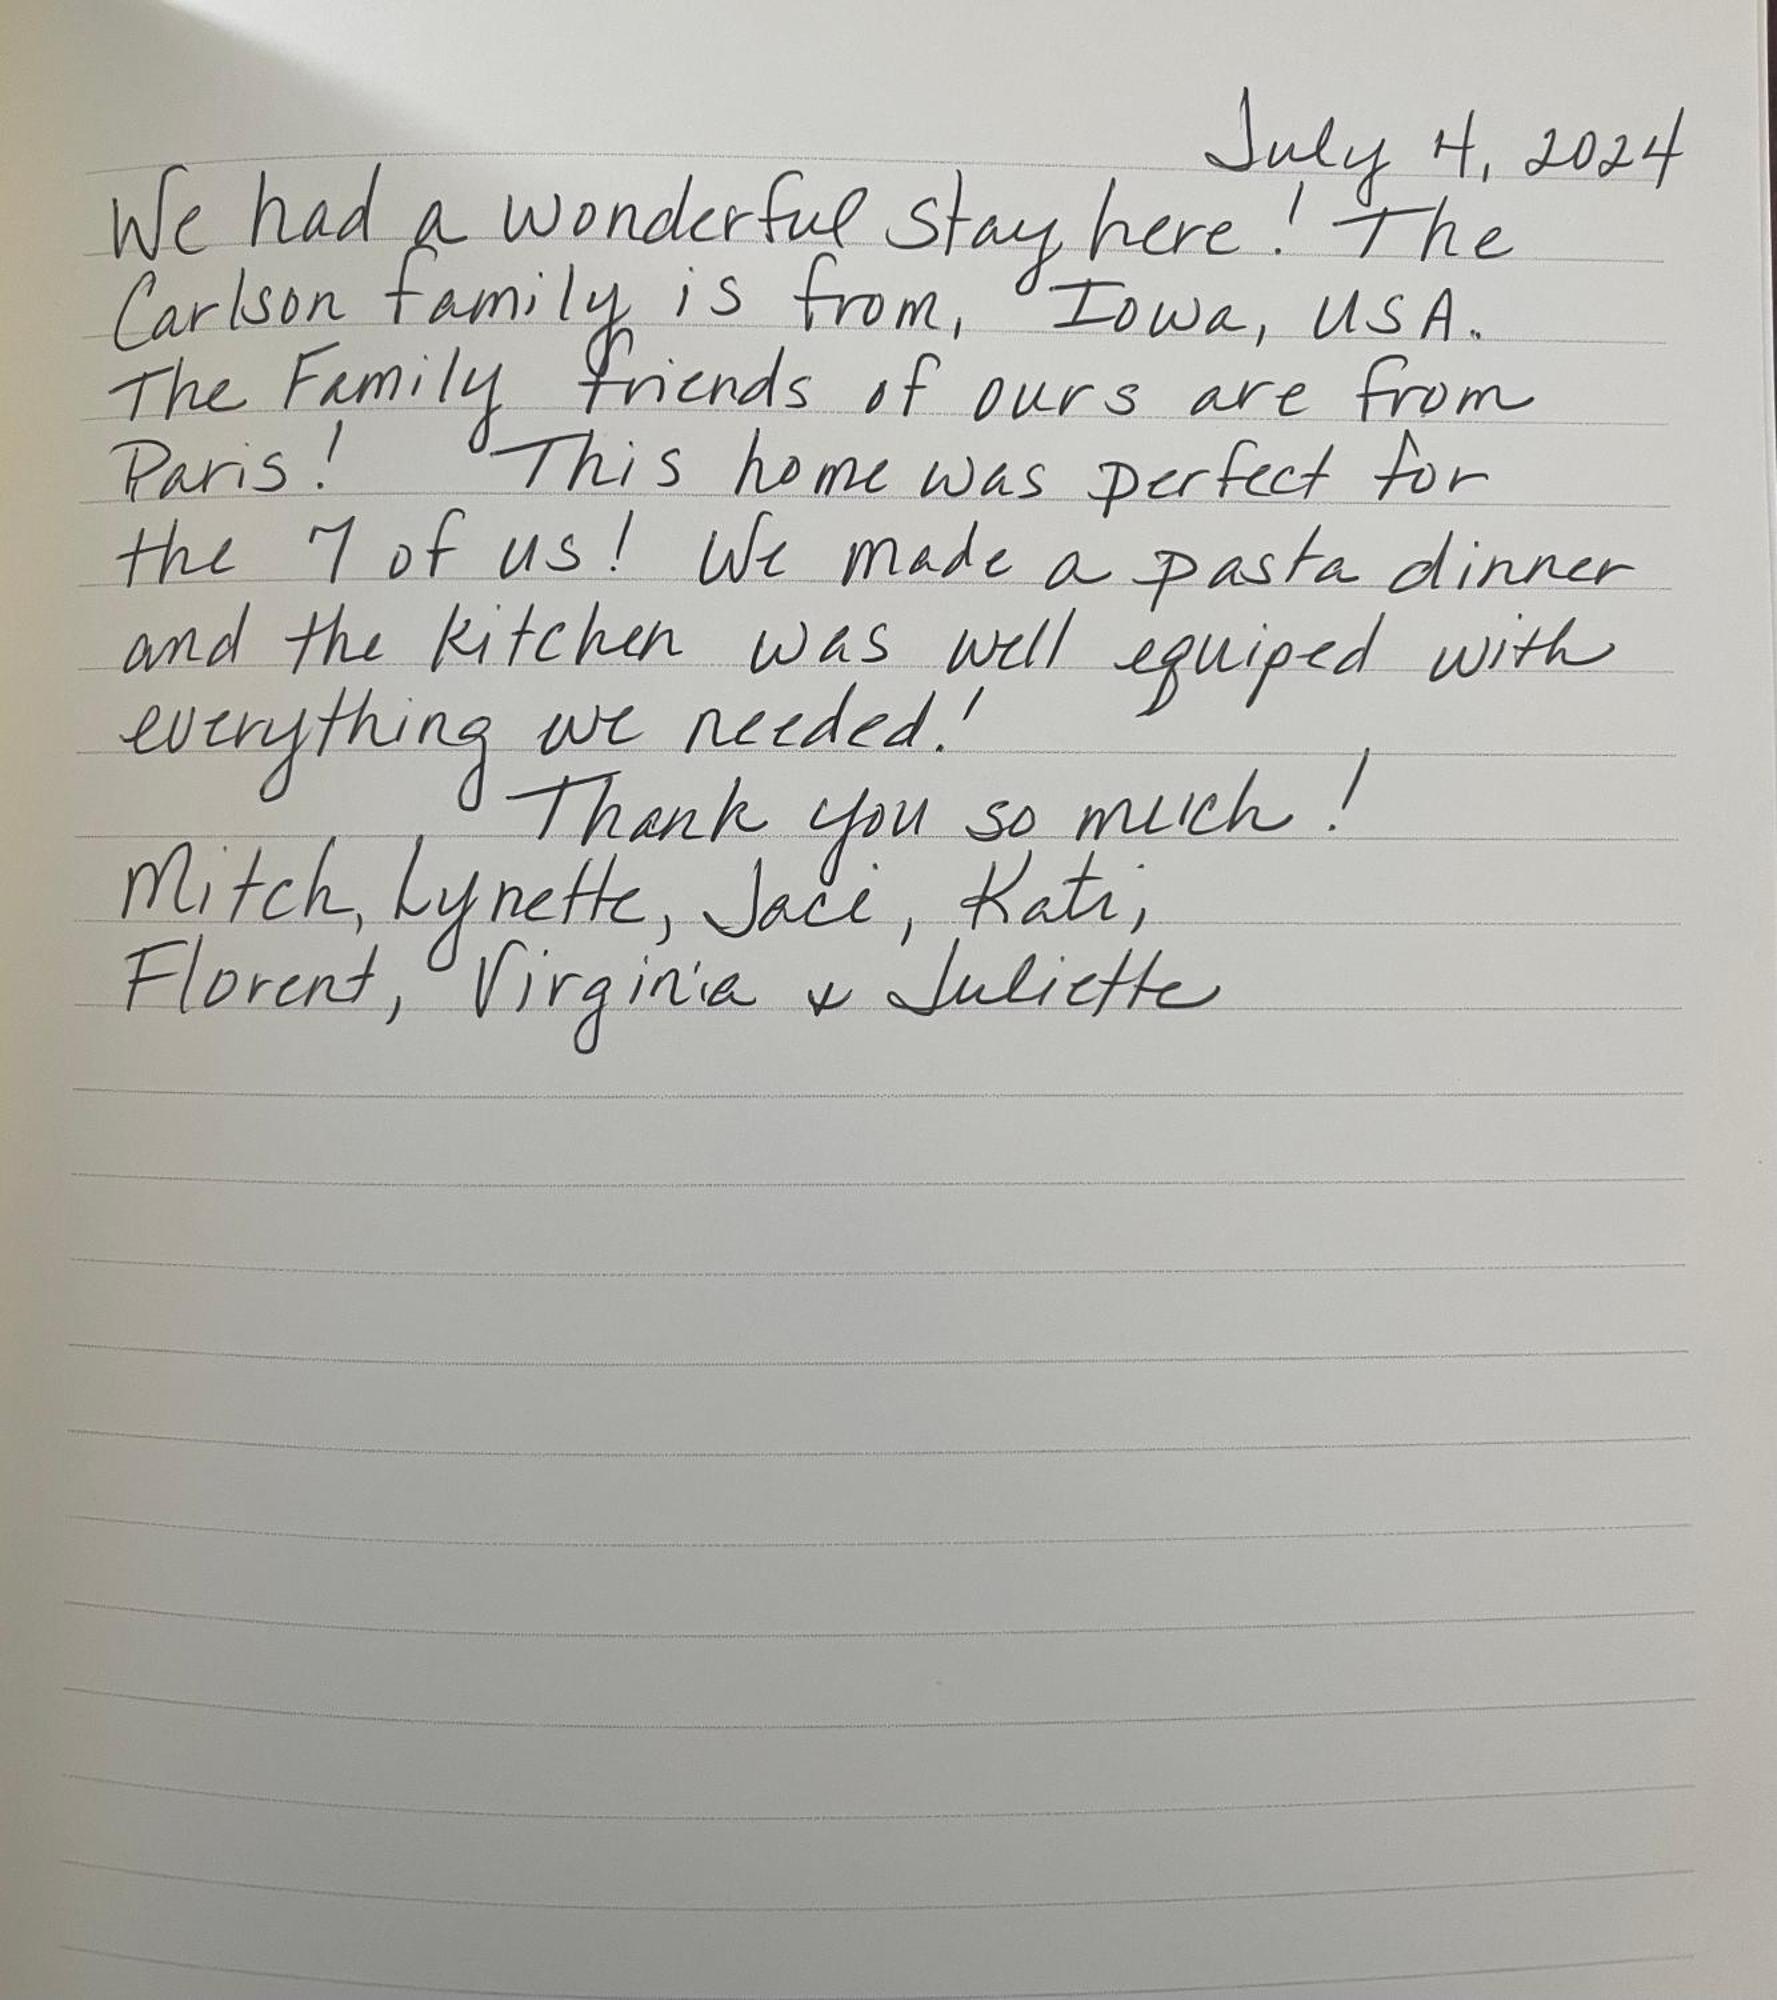 July 4, 2024
We had a wonderful stay here! The
Carlson family is from, Iowa, USA.
The Family friends of ours are from
Paris! This home was perfect for
the 7 of us! We made a pasta dinner
and the kitchen was well equiped with
everything we needed!
Thank you so much!
Mitch, Lynette, Jaci, Kati,
Florent, Virginia & Juliette